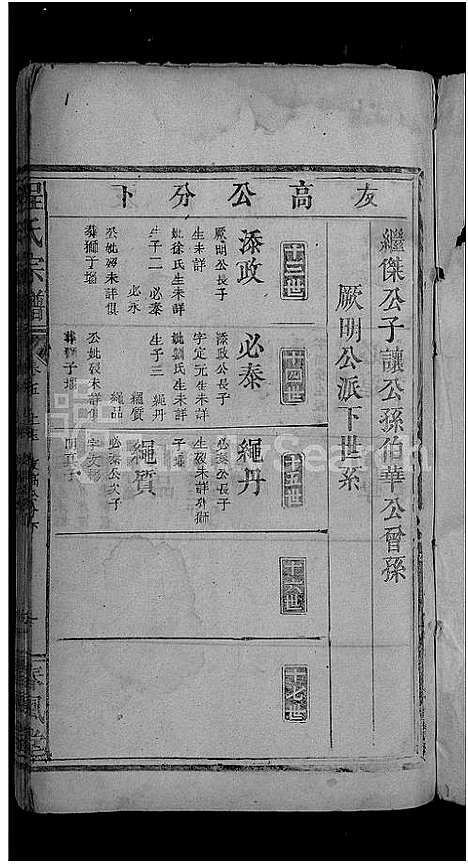 友高公分下
繼傑公子讓公孫伯華公曾孫
厥明公派下世系
十三世
添政
厥明公長子
生未詳
妣徐氏生未詳
生子二 必泰
必永
公妣歿未詳俱
葬獅子墖
十四世
必泰
添政公長子
字定元生未詳
妣劉氏生未詳
生子三 繩丹
繩質
繩品
公妣歿未詳俱
葬獅子墖
十五世
繩丹
必泰公長子
生歿未詳葬獅
子墖
繩質
必泰公次子
十六世
十七世
程氏宗譜